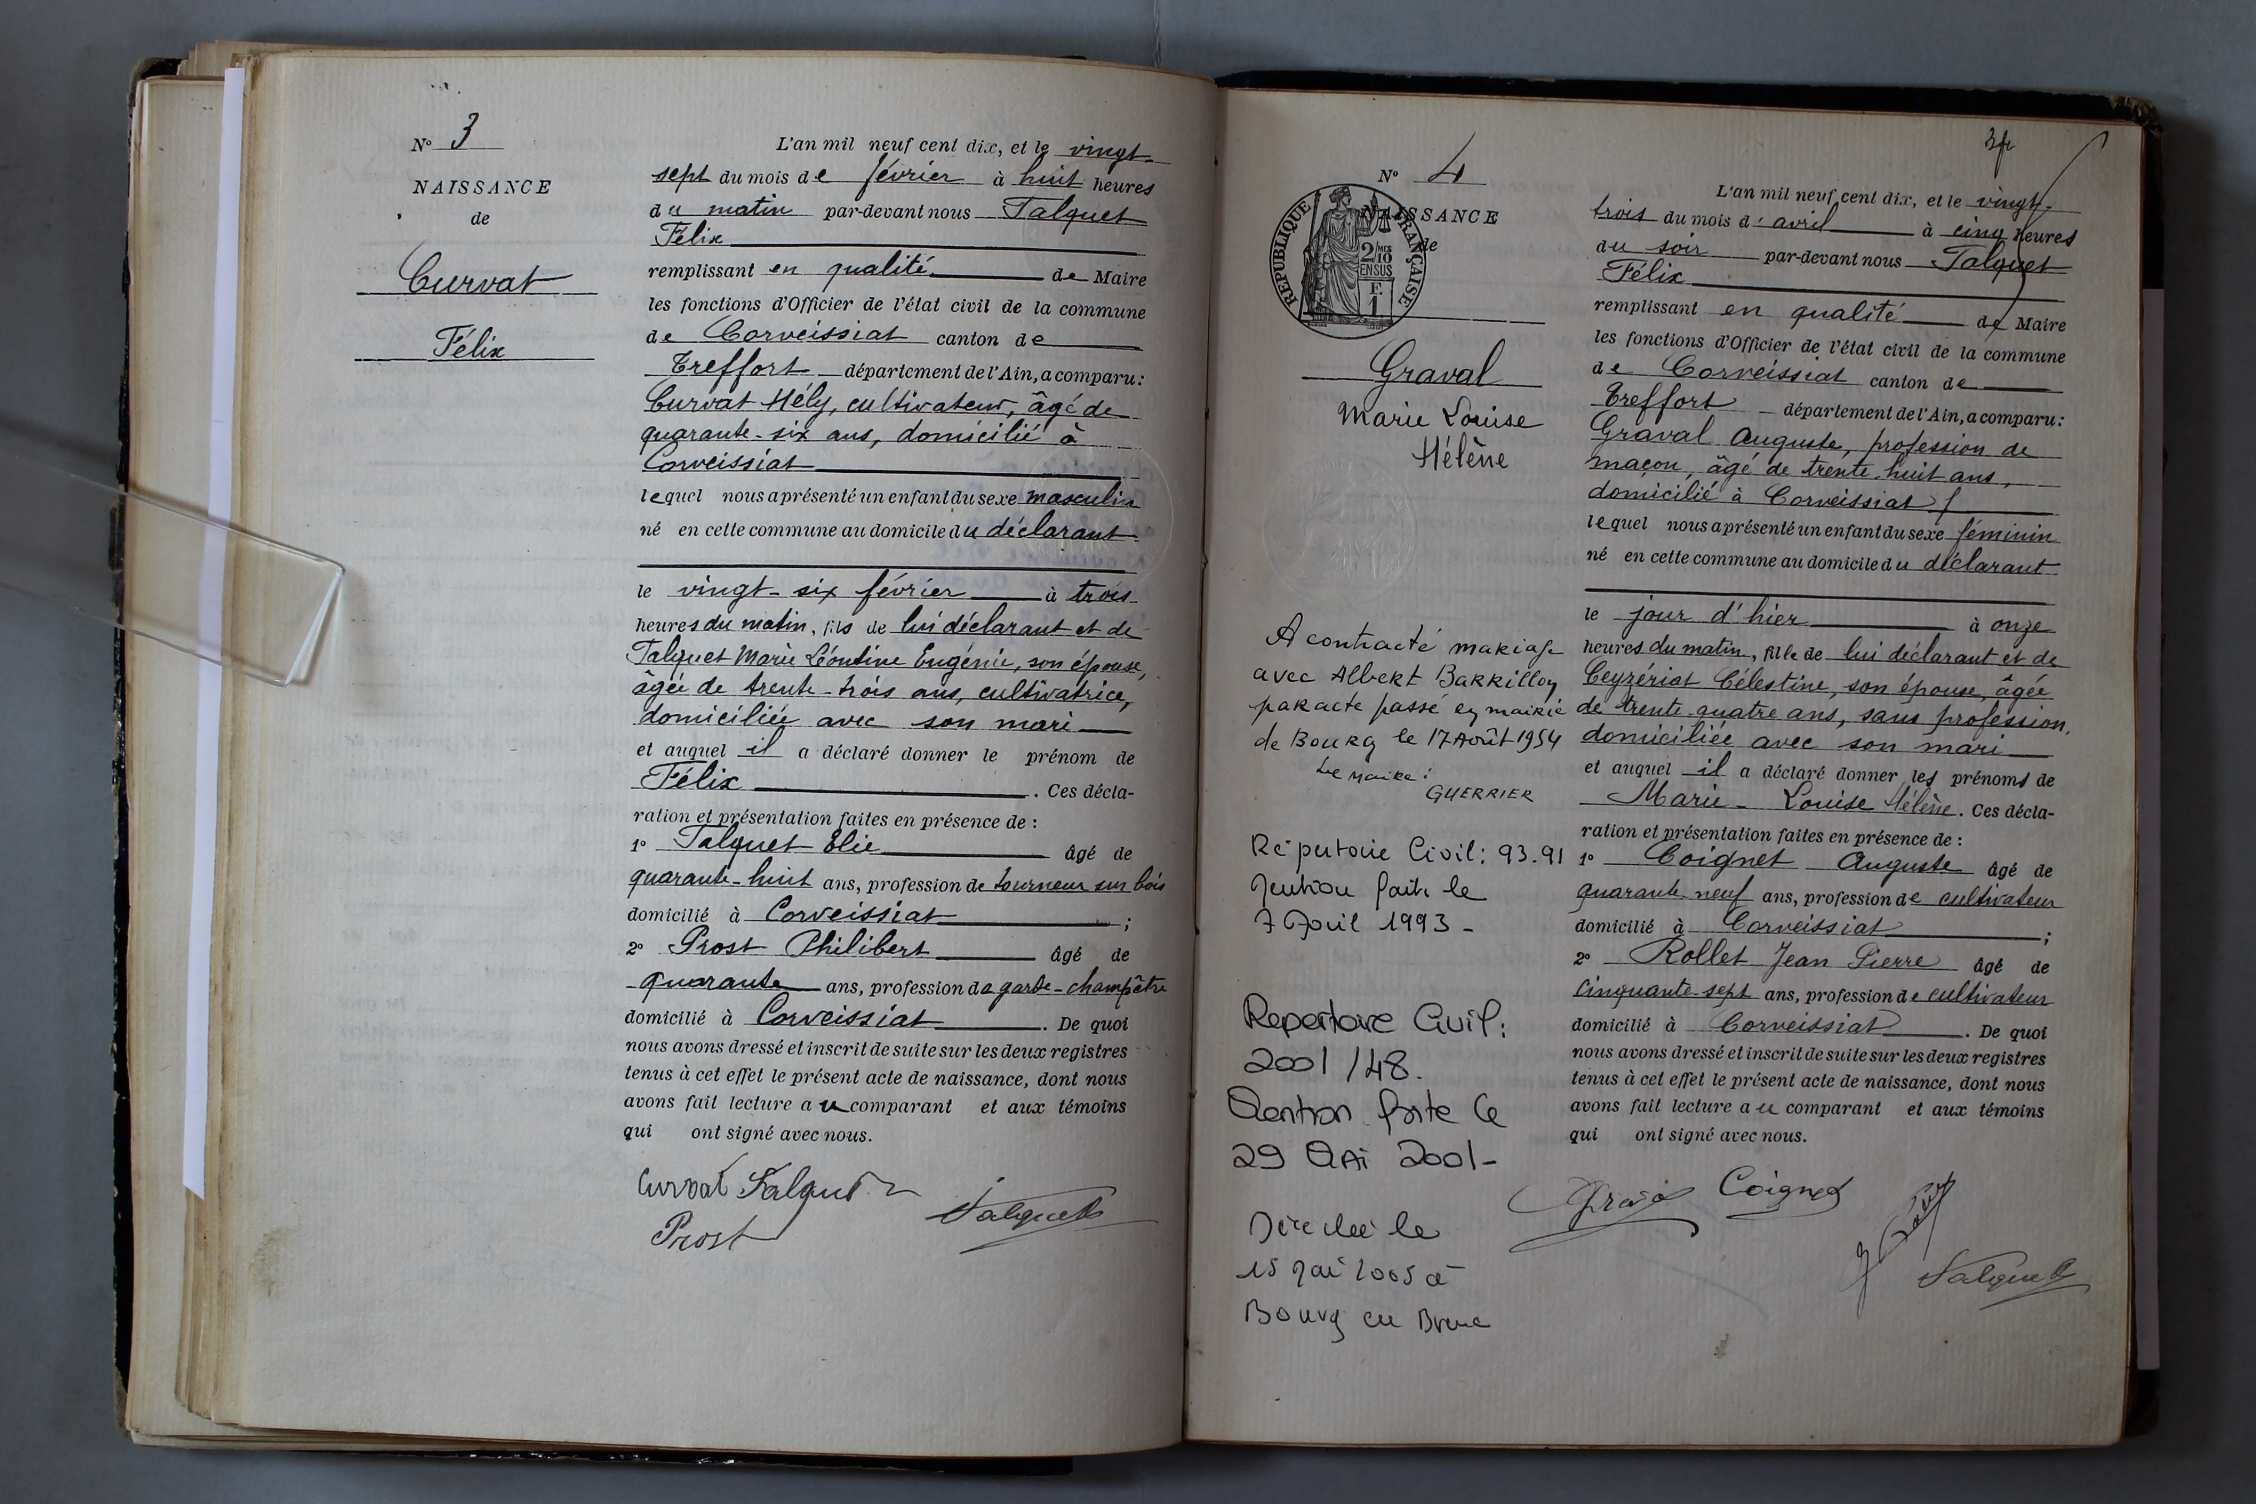 N° 3
NAISSANCE
de
Curvat
Félix
L'an mil neuf cent dix, et le vingt-
sept du mois de février à huit heures
du matin par-devant nous Talquet
Félix
remplissant en qualité de Maire
les fonctions d'Officier de l'état civil de la commune
de Corveissiat canton de
Treffort département de l'Ain, a comparu:
Curvat Hély, cultivateur, âgé de
quarante-six ans, domicilié à
Corveissiat
lequel nous a présenté un enfant du sexe masculin
né en cette commune au domicile du déclarant
le vingt-six février à trois
heures du matin, fils de lui déclarant et de
Talquet Marie Léontine Eugénie, son épouse,
âgée de trente-trois ans, cultivatrice,
domiciliée avec son mari
et auquel il a déclaré donner le prénom de
Félix. Ces décla-
ration et présentation faites en présence de :
1° Talquet Elie âgé de
quarante-huit ans, profession de tourneur sur bois
domicilié à Corveissiat ;
2° Prost Philibert âgé de
quarante ans, profession de garde-champêtre
domicilié à Corveissiat. De quoi
nous avons dressé et inscrit de suite sur les deux registres
tenus à cet effet le présent acte de naissance, dont nous
avons fait lecture au comparant et aux témoins
qui ont signé avec nous.
Curvat Talquet
Prost
Talquet
N° 4
NAISSANCE
de
RÉPUBLIQUE FRANÇAISE
2/10 MES
EN SUS
F.
1
Graval
Marie Louise
Hélène
A contracté mariage
avec Albert Barrillon
par acte passé en mairie
de Bourg le 17 Août 1954
Le Maire :
GUERRIER
Répertoire Civil : 93.91
Mention faite le
7 Avril 1993 -
Repertoire Civil :
2001/48.
Mention faite le
29 Mai 2001-
Décédée le
15 Mai 2005 à
Bourg en Bresse
3fr
L'an mil neuf cent dix, et le vingt-
trois du mois d'avril à cinq heures
du soir par-devant nous Talquet
Félix
remplissant en qualité de Maire
les fonctions d'Officier de l'état civil de la commune
de Corveissiat canton de
Treffort département de l'Ain, a comparu:
Graval Auguste, profession de
maçon, âgé de trente huit ans,
domicilié à Corveissiat
lequel nous a présenté un enfant du sexe féminin
né en cette commune au domicile du déclarant
le jour d'hier à onze
heures du matin, fille de lui déclarant et de
Ceyzériat Célestine, son épouse, âgée
de trente-quatre ans, sans profession,
domiciliée avec son mari
et auquel il a déclaré donner les prénoms de
Marie-Louise Hélène. Ces décla-
ration et présentation faites en présence de :
1° Coignet Auguste âgé de
quarante neuf ans, profession de cultivateur
domicilié à Corveissiat ;
2° Rollet Jean Pierre âgé de
cinquante-sept ans, profession de cultivateur
domicilié à Corveissiat. De quoi
nous avons dressé et inscrit de suite sur les deux registres
tenus à cet effet le présent acte de naissance, dont nous
avons fait lecture au comparant et aux témoins
qui ont signé avec nous.
Coignet
Talquet